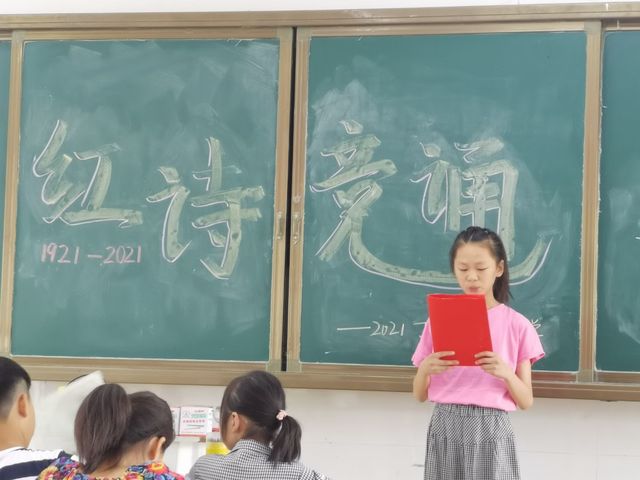 红诗竞诵
1921—2021
——2021